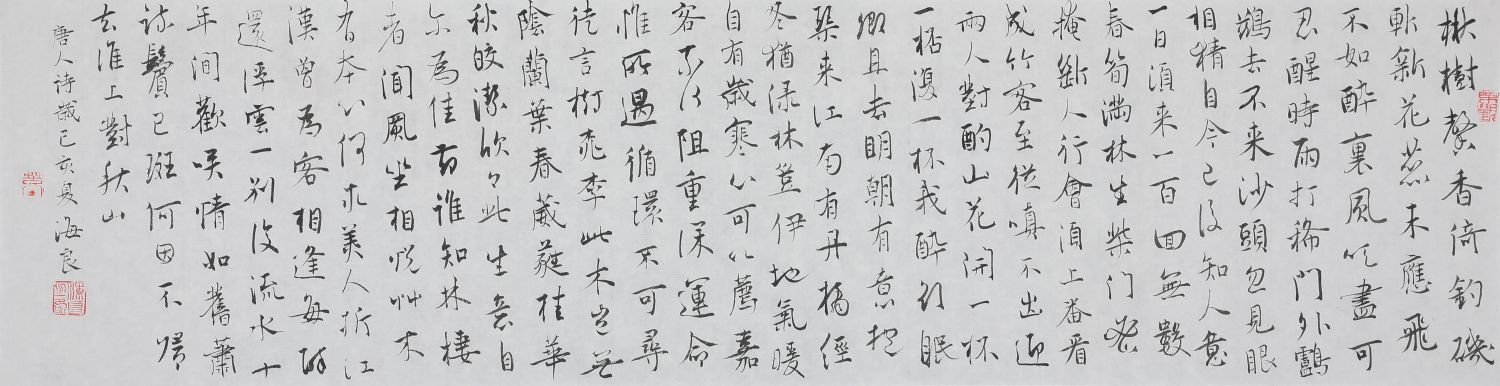 楸樹馨香倚釣磯
斬新花蕊未應飛
不如醉裏風吹盡可
忍醒時雨打稀門外鸕
鶿去不来沙頭忽見眼
相猜自今已後知人意
一日須来一百回無數
春筍滿林生柴門密
掩斷人行會須上番看
成竹客至從嗔不出迎
兩人對酌山花開一杯
一杯復一杯我醉欲眠
卿且去明朝有意抱
琹来江南有丹橘經
冬猶渌林豈伊地氣暖
自有歲寒心可以薦嘉
客奈何阻重深運命
惟所遇循環不可尋
徒言樹桃李此木豈無
陰蘭葉春葳蕤桂華
秋皎潔欣々此生意自
尔為佳節誰知林棲
者聞風坐相悦艸木
有本心何求美人折江
漢曾為客相逢每醉
還浮雲一別後流水十
年間歡咲情如舊蕭
疏鬢已斑何因不歸
去淮上對秋山
唐人诗歲己亥夏海良